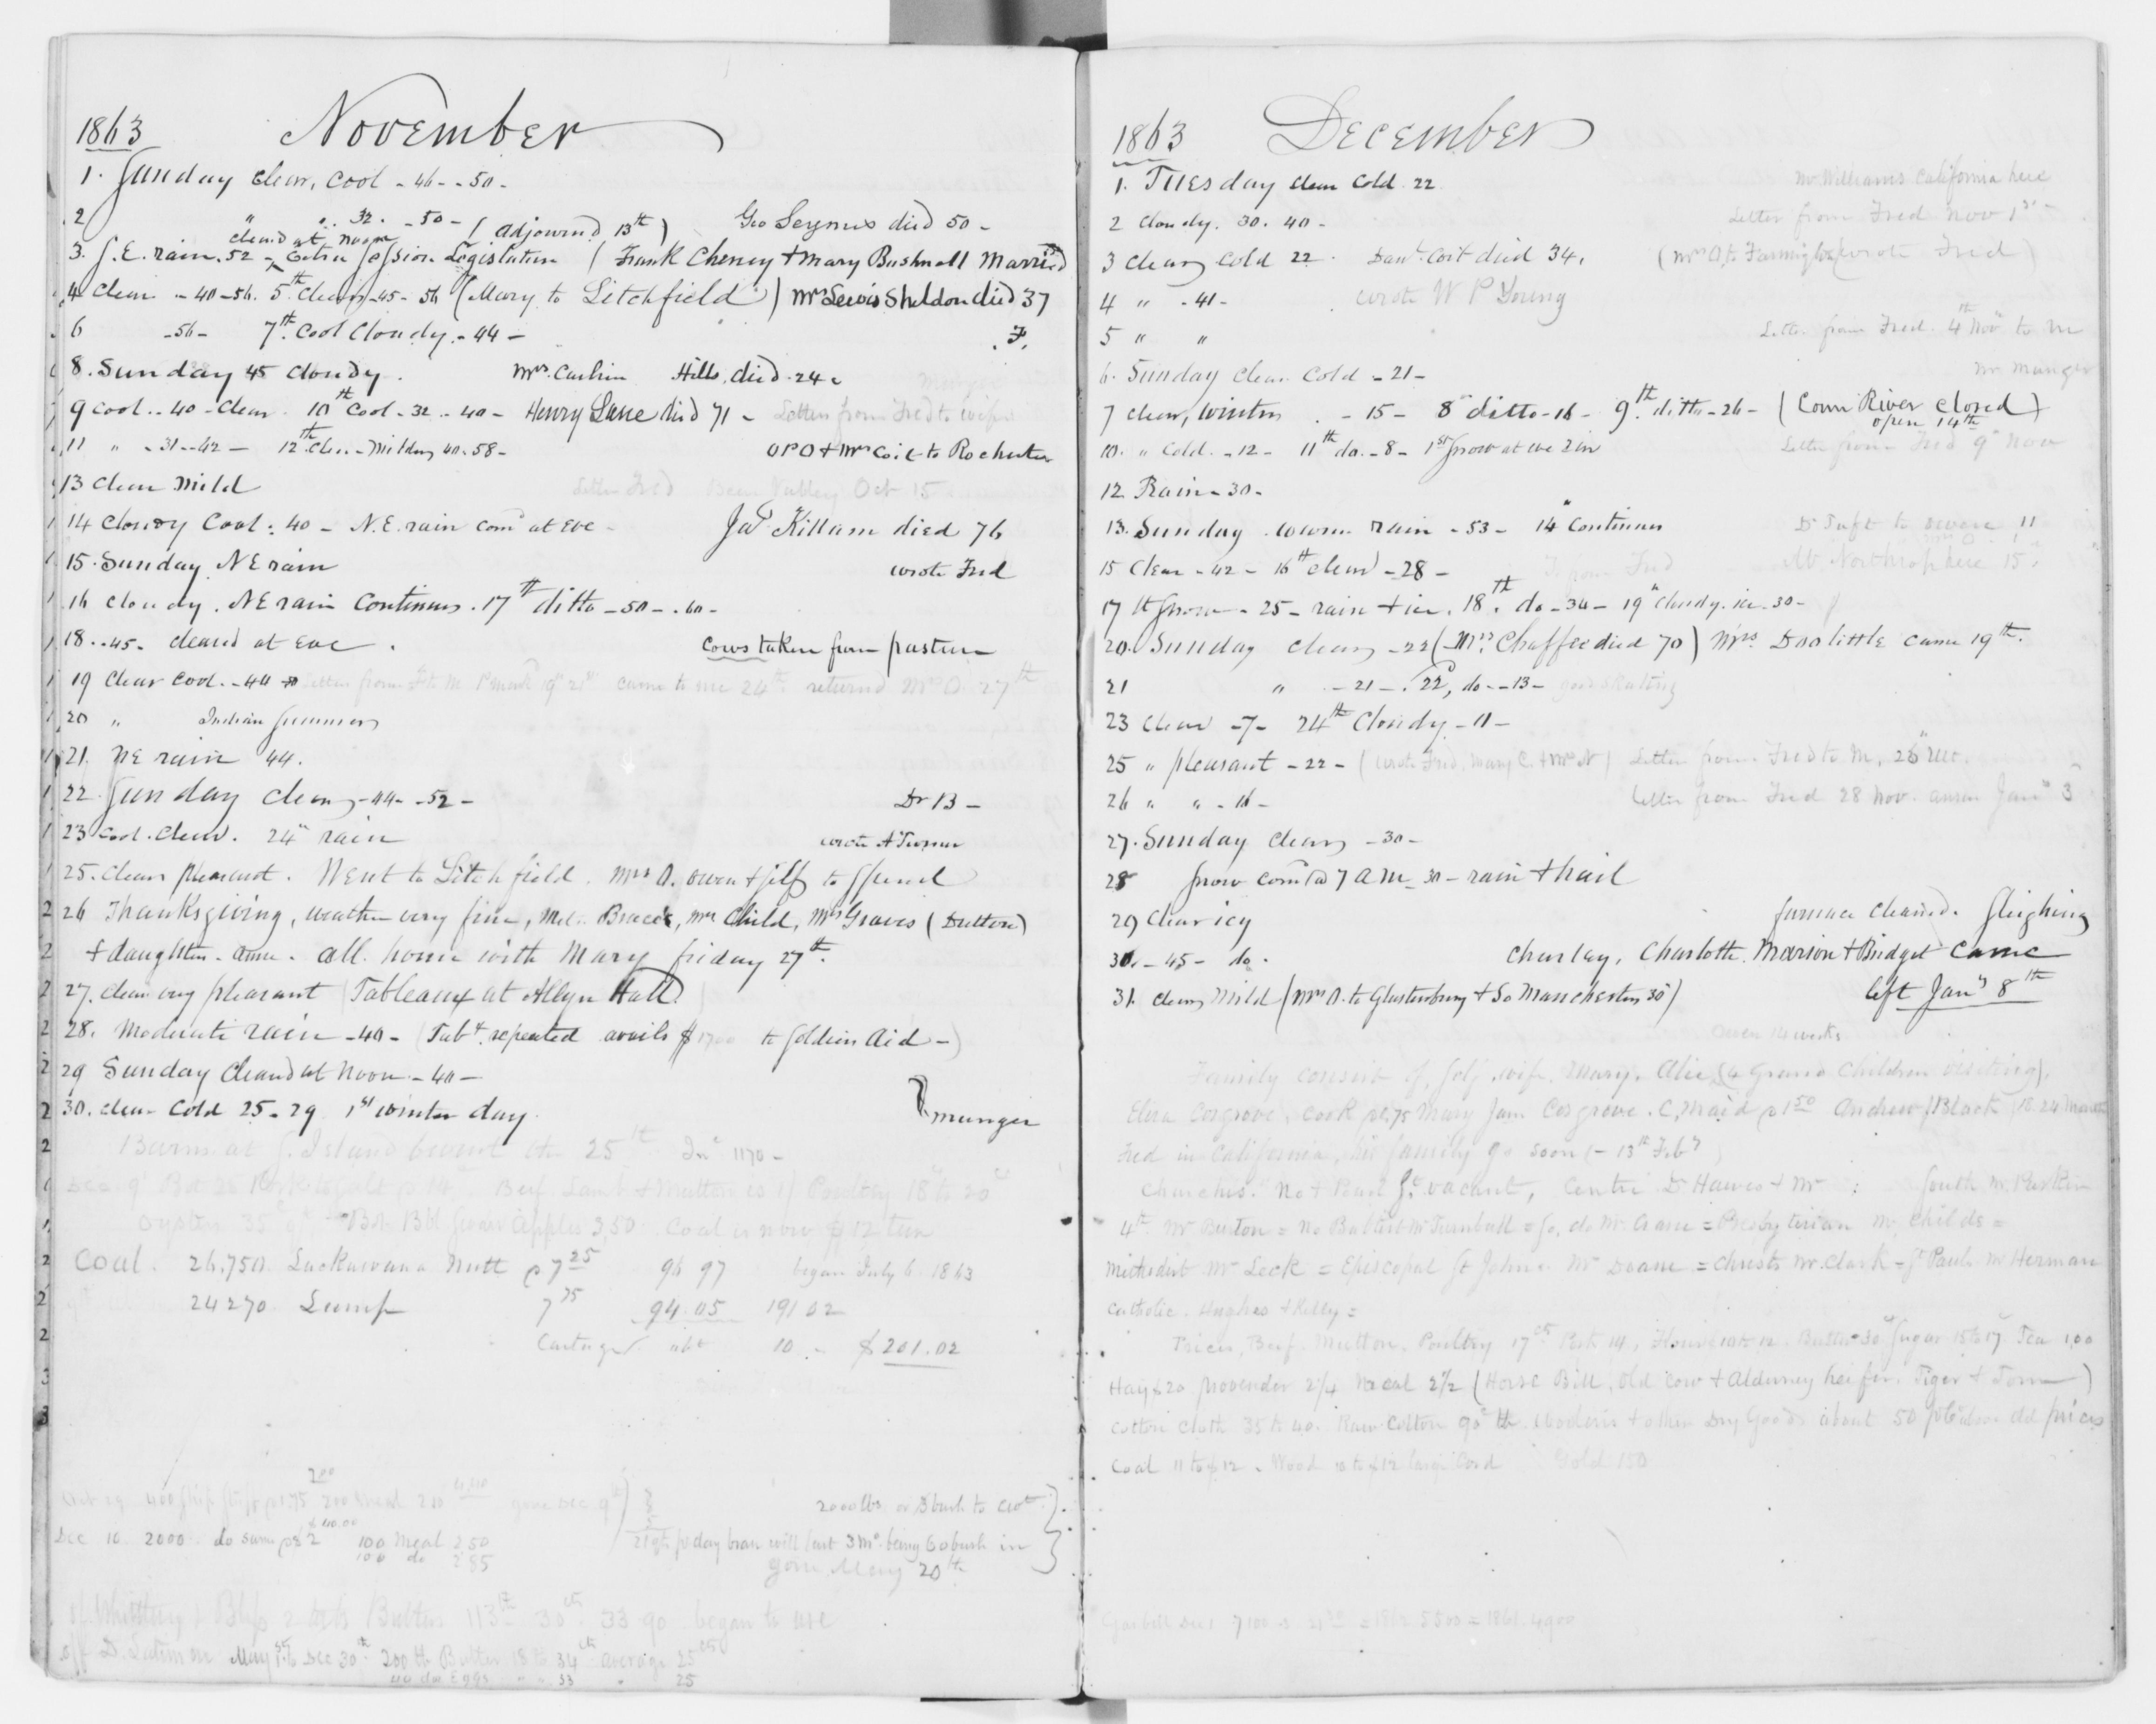 1863 November
1. Sunday clear, cool - 46 - - 50 -
2 " " 32 - - 50 - (adjourned 13th) Geo Seymus died 50 -
cleard at noon
3. S.E. rain. 52 - Extra session Legislature (Frank Cheney + Mary Bushnell Married
4 Clear - 40 - 56. 5th Clear - 45 - 56 (Mary to Litchfield) Mrs Lewis Sheldon died 37
6 - 56 - 7th Cool Cloudy - 44 - F.
8. Sunday 45 Cloudy. Mrs. Hills, died 24
9 Cool - - 40 - Clear 10th Cool - 32 - - 40 - Henry Lane died 71 - Letter from Fred to wife
11 " - 31 - - 42 - 12th Clear - Milder 40. 58 - OPO + Mrs Coit to Rochester
13 Clear Mild Letter Fred Valley Oct 15
14 Cloudy Cool: 40 - N.E. rain comd at Eve - Jas Killam died 76
15. Sunday NE rain wrote Fred
16 Cloudy. NE rain Continues. 17th ditto - 50 - . 60 -
18 - . 45 - cleared at Eve. Cows taken from pasture
19 Clear Cool. - 44 letter from F to M came to me 24th returned Mrs O. 27th
20 " Indian Summer
21. NE rain 44.
22 Sunday Clear - 44 - - 52 - Dr B -
23 Cool. Clear. 24" rain wrote A Turner
25. Clear pleasant. Went to Litchfield. Mrs O. Owen + self to spend
26 Thanksgiving, weather very fine, Braces, Mrs Child, Mrs Graves (Dutton)
+ daughter all home with Mary friday 27th.
27. Clear very pleasant (Tableaux at Allyn Hall)
28. Moderate rain - 40 - (Tabx. repeated avails $1700 to Soldiers Aid -)
29 Sunday Cleard at Noon - 40 -
30. clear Cold 25 - 29 1st winter day. Munger
Barn at S. Island 25th 1170 -
Dec 9 Beef Lamb + Mutton Poultry 18 to 20c
Oysters 35 Bbl Apples 3,50. Coal is now $12 tun
Coal. 26.750. Lackawana Nutt @ 7 25 96 97 began July 6. 1863
24270 Lump 7 75 94.05 191 02
Cartage 10 - $201.02
200
200 Meal 2 gone Dec 9th 2000 lbs or 
Dec 10. 2000 do same 100 Meal 2 50 day bran will last 3 mo being 60 bush in
100 do 2 85 gone May 20th
Butter 113 30 cts 33 90 began to use
of D. Latimer May 1st to Dec 30th 200 lb Butter 18 to 34 cts average 25 cts
doz Eggs 33 25
1863 December
1. Tuesday clear Cold 22 Mr Williams California here
2 Cloudy. 30. 40 - Letter from Fred Nov 1st -
3 Clear Cold 22. Danl. Coit died 34. (Mrs O. to Farmington) (wrote Fred)
4 " - 41 - wrote W P Young
5 " " Letter from Fred. 4th Nov to M
6. Sunday Clear Cold - 21 - Mr Munger
7 Clear, Winter - 15 - 8" ditto - 16 - 9th ditto - 26 - (Conn River closed)
open 14th
10. " Cold. - 12 - 11th do. - 8 - 1st Snow at eve 2 in Letter from Fred 9" Nov
12 Rain - 30 -
13. Sunday warm rain - 53 - 14" Continues Dr Taft to 11
15 Clear - 42 - 16th clear - 28 - from Fred Northrop here 15
17 Lt Snow - 25 - rain + ice. 18th. do - 34 - 19" Cloudy. ice - 30 -
20. Sunday clear - 22 (Mrs. Chaffee died 70) Mrs. Doolittle came 19th.
21 " - 21 - . 22d, do - - 13 - good Skating
23 Clear - 7 - 24th Cloudy - 11 -
25 " pleasant - 22 - (wrote Fred, Mary C. + Mrs N) Letter from Fred to M, 26" ult.
26 " " - 16 - Letter from Fred 28 Nov. answd Jany 3
27. Sunday Clear - 30 -
28 Snow comd @ 7 AM - 30 - rain + hail
29 Clear icy furnace cleaned. Sleighing
30. - 45 - do. Charley, Charlotte. Marion + Bridget Came
31. Clear Mild (Mrs O. to Glastenbury + So Manchester 30) left Jany 8th
Owen 14 weeks
Family consist of, self, wife. Mary. Alice, (4 Grand Children visiting).
Eliza Cosgrove, cook Mary Jane Cosgrove. C, Maid @ 1 50 Andrew (Black)
Fred in California, his family go soon (- 13th Feby)
Churches. No + Pearl St. vacant, Centre Dr Hawes + Mr : South Mr Parker
4th Mr Burton = No Baptist Mr Turnbull = So. do Mr Crane = Presbyterian Mr Childs =
Methodist Mr Leek = Episcopal St Johns. Mr Doane = Christs Mr. Clark - St Pauls Mr Herman
Catholic. Hughes + Kelly =
Prices, Beef. Mutton. Poultry 17 cts Pork 14. Butter 30 Sugar 15 to 17 Tea 1,00
Hay $20 provender 2 1/4 Meal 2 1/2 (Horse Bill, old cow + Alderney heifer. Tiger + Tom)
Cotton Cloth 35 to 40. Raw Cotton 90c lb. Woolens + other Dry Goods about 50 old prices
Coal 11 to $12. Wood 10 to $12 large Cord Gold 150
Gas bill Dec 1 7100 = 1862 5500 = 1861. 4900